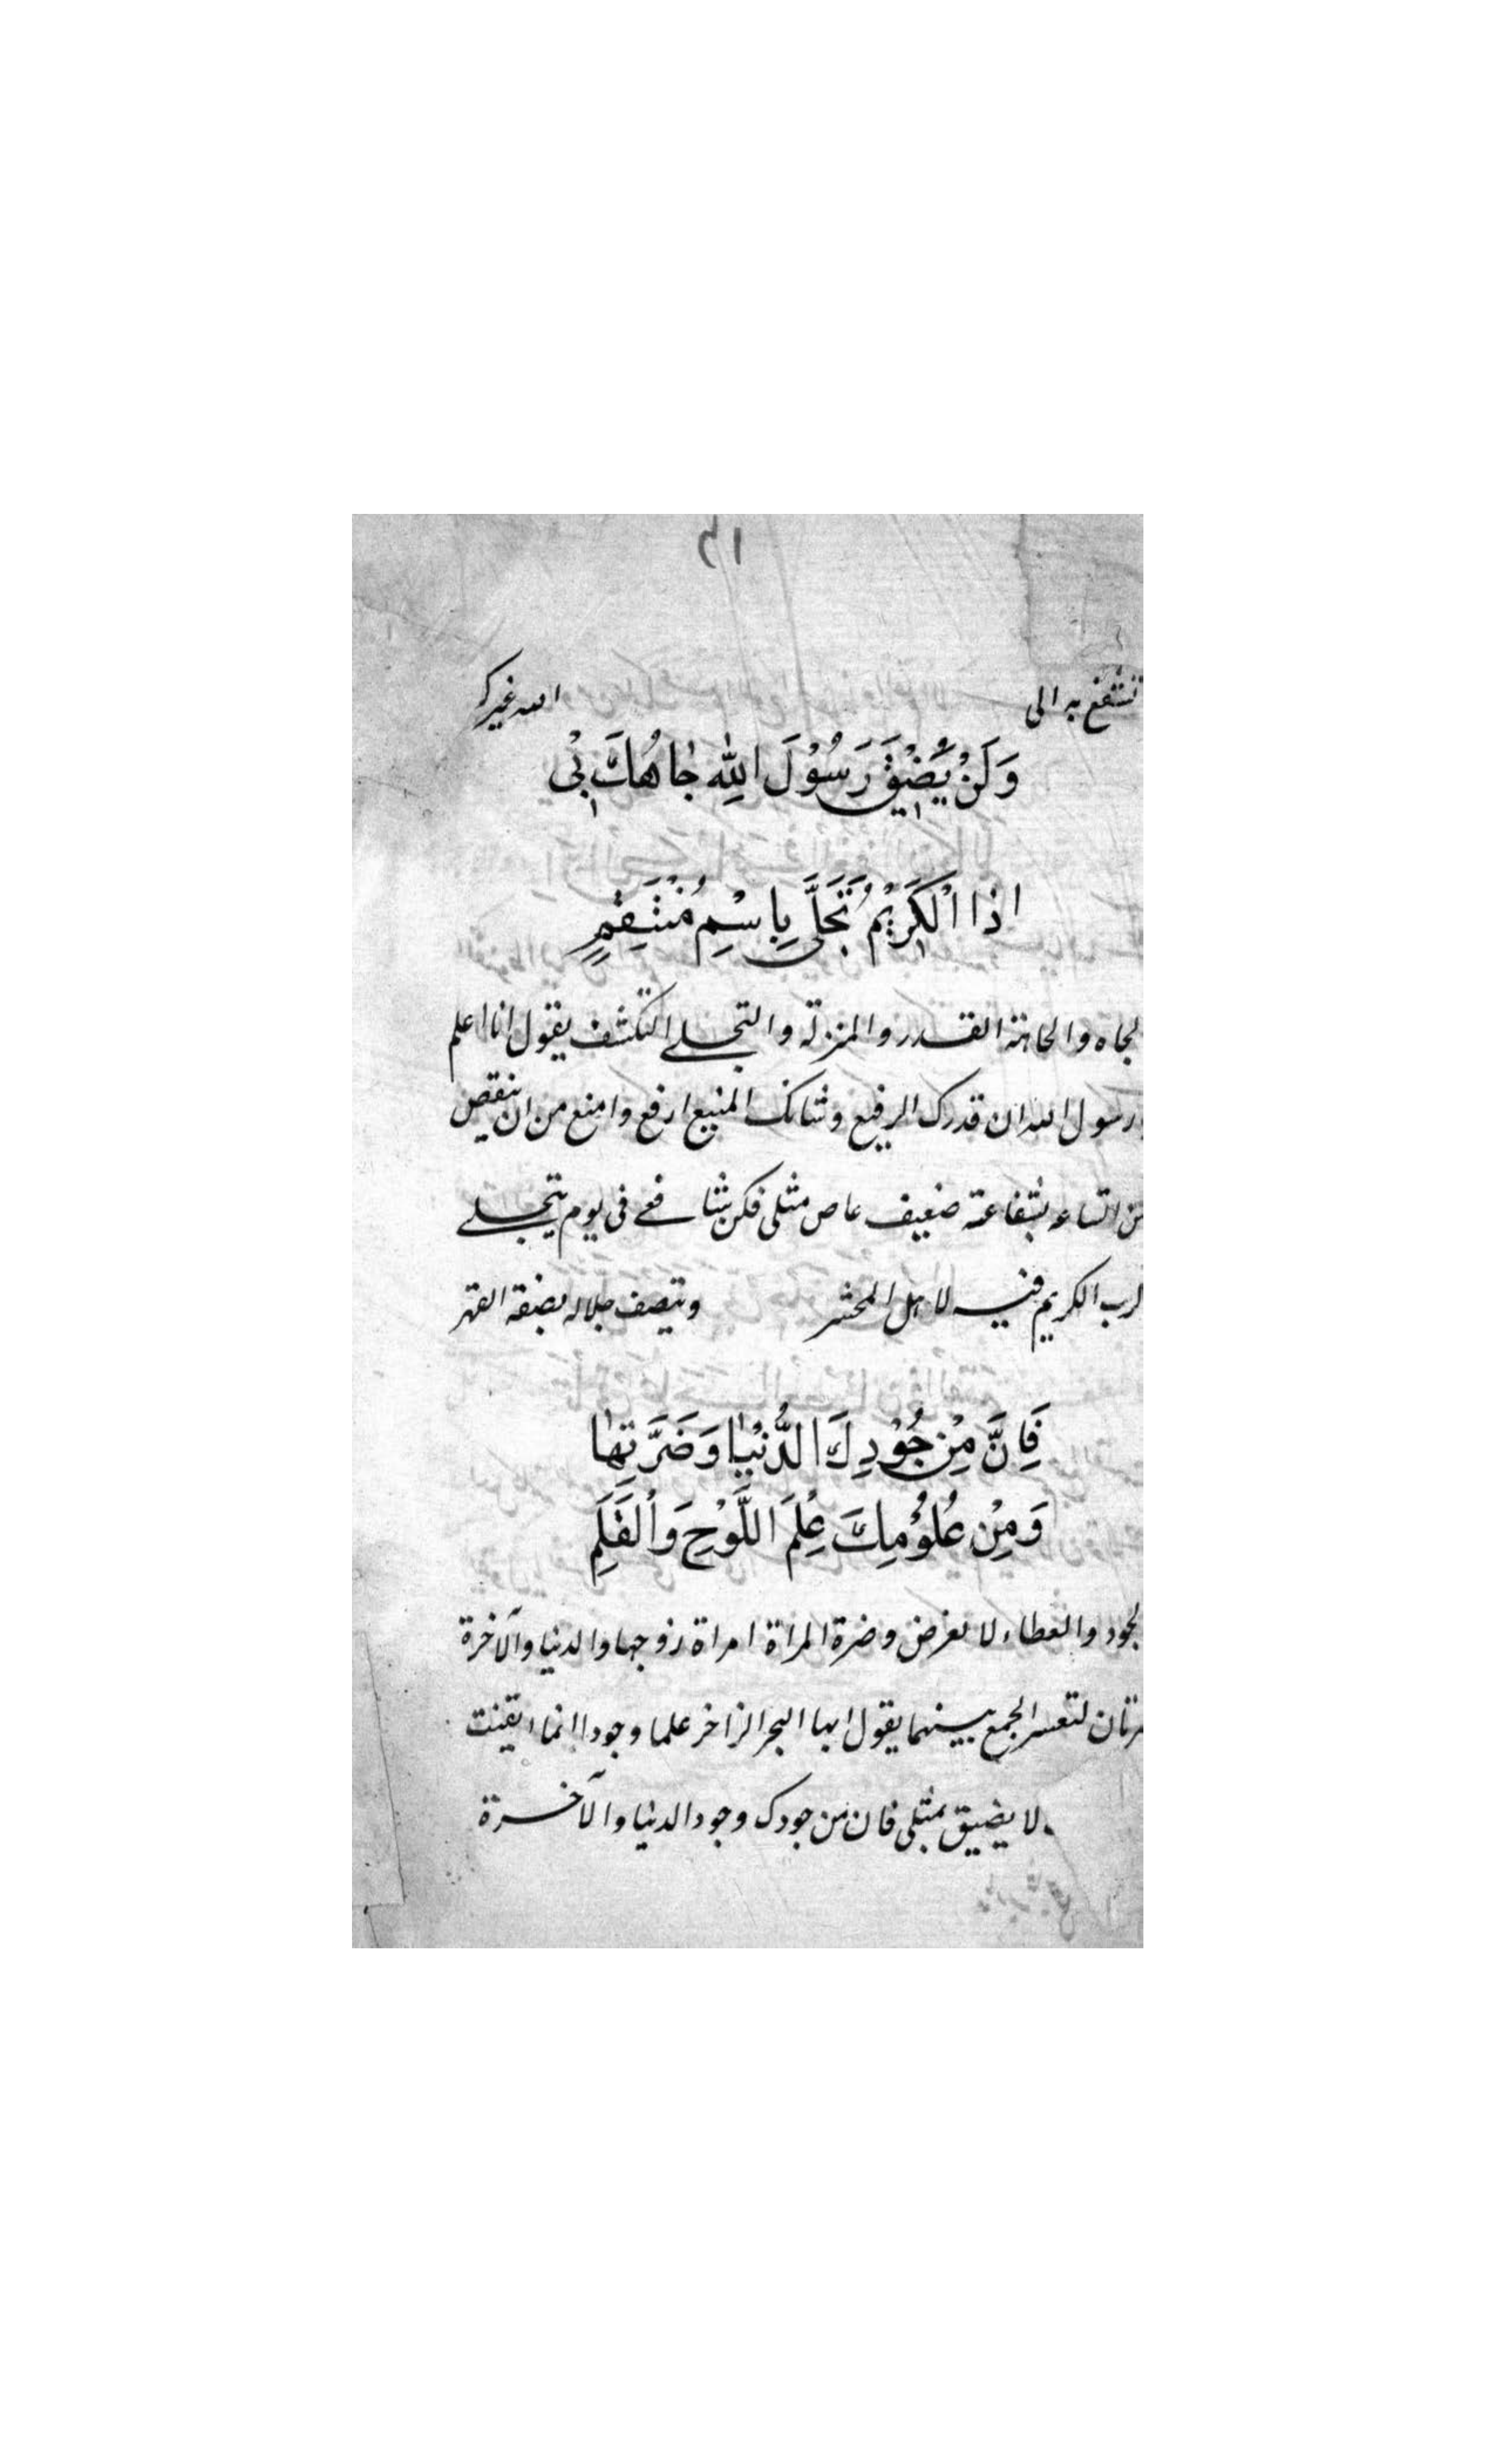 نتشفع به الى الله غيرك
وَلَنْ يَضِيْقَ رَسُوْلَ اللهِ جَاهُكَ بِيْ
اذا الْكَرِيْمُ تَجَلَّى بِاسْمِ مُنْتَقِمٍ
لجاه والجاهة القدر والمنزلة والتجلے التكشف يقول انا اعلم
رسول الله ان قدرك الرفيع وشانك المنيع ارفع وامنع من ان ينقص
من بشفاعة ضعيف عاص مثلى فكن شافعے فى يوم يتجلے
لرب الكريم فيه لاهل المحشر ويتصف جلاله بصفة القهر
فَاِنَّ مِنْ جُوْدِكَ الدُّنْيَا وَضَرَّتَهَا
وَمِنْ عُلُوْمِكَ عِلْمَ اللَّوْحِ وَالْقَلَمِ
لجود والعطاء لا لغرض وضرة المراة امراة زوجها والدنيا والآخرة
رتان لتعسر الجمع بينهما يقول ايها البحر الزاخر علما وجودا انما ايقنت
لا يضيق بمثلى فان من جودك وجود الدنيا والآخرة